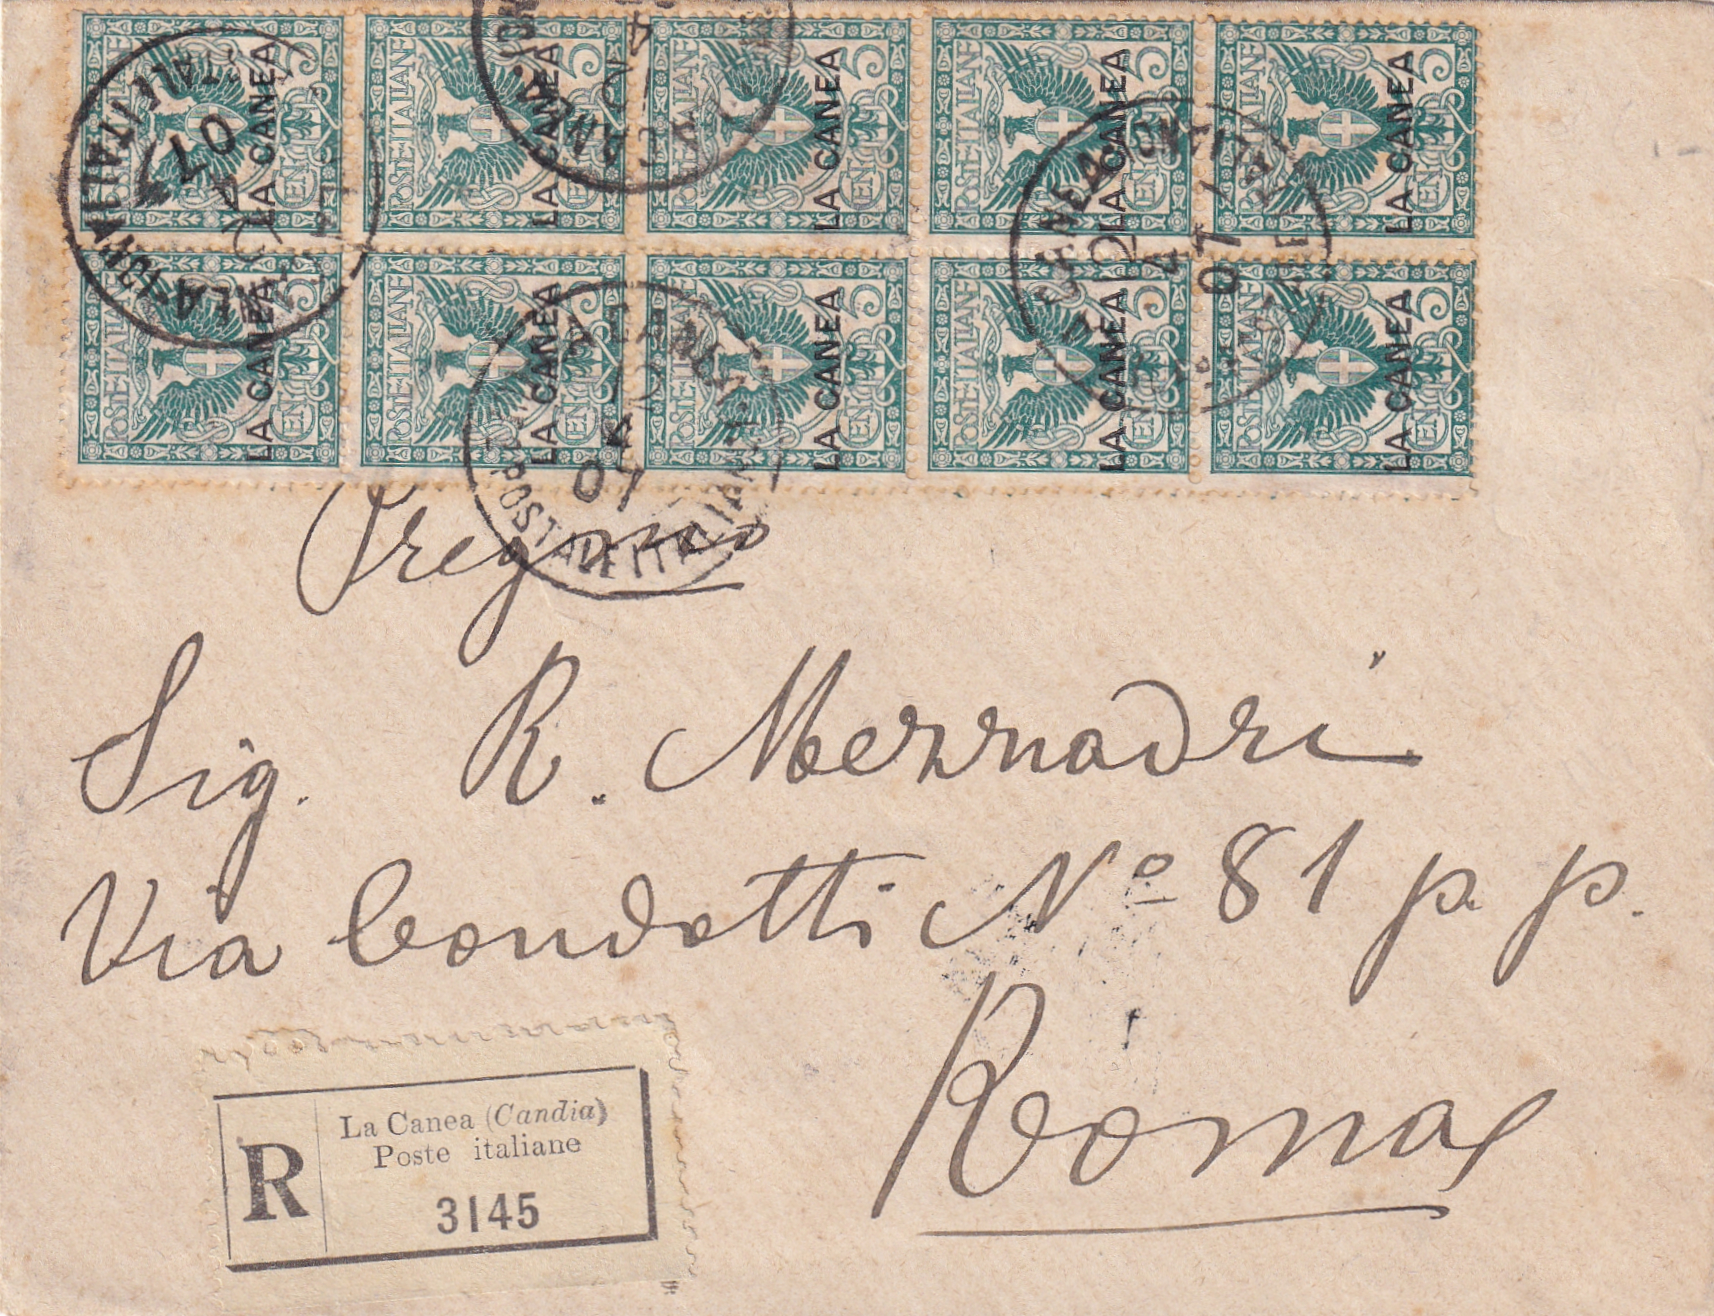 POSTE ITALIANE 5 CENT. LA CANEA
POSTE ITALIANE 5 CENT. LA CANEA
POSTE ITALIANE 5 CENT. LA CANEA
POSTE ITALIANE 5 CENT. LA CANEA
POSTE ITALIANE 5 CENT. LA CANEA
POSTE ITALIANE 5 CENT. LA CANEA
POSTE ITALIANE 5 CENT. LA CANEA
POSTE ITALIANE 5 CENT. LA CANEA
POSTE ITALIANE 5 CENT. LA CANEA
POSTE ITALIANE 5 CENT. LA CANEA
4 07
12 4 07
4 07
POSTALE ITALIANA
Pregmo
Sig. R. Mezzadri
Via Condotti Nº 81 p. p.
Roma
R
La Canea (Candia)
Poste italiane
3145